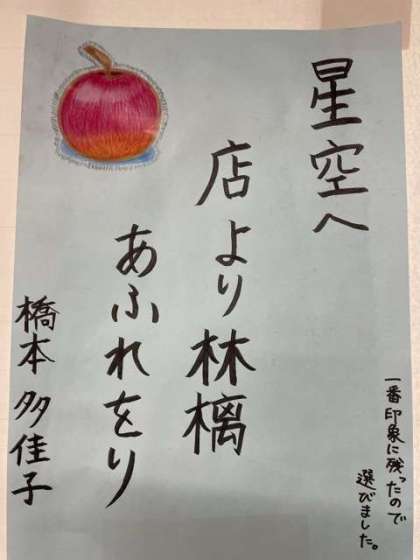 星空へ
店より林檎
あふれをり
橋本多佳子
一番印象に残ったので
選びました。